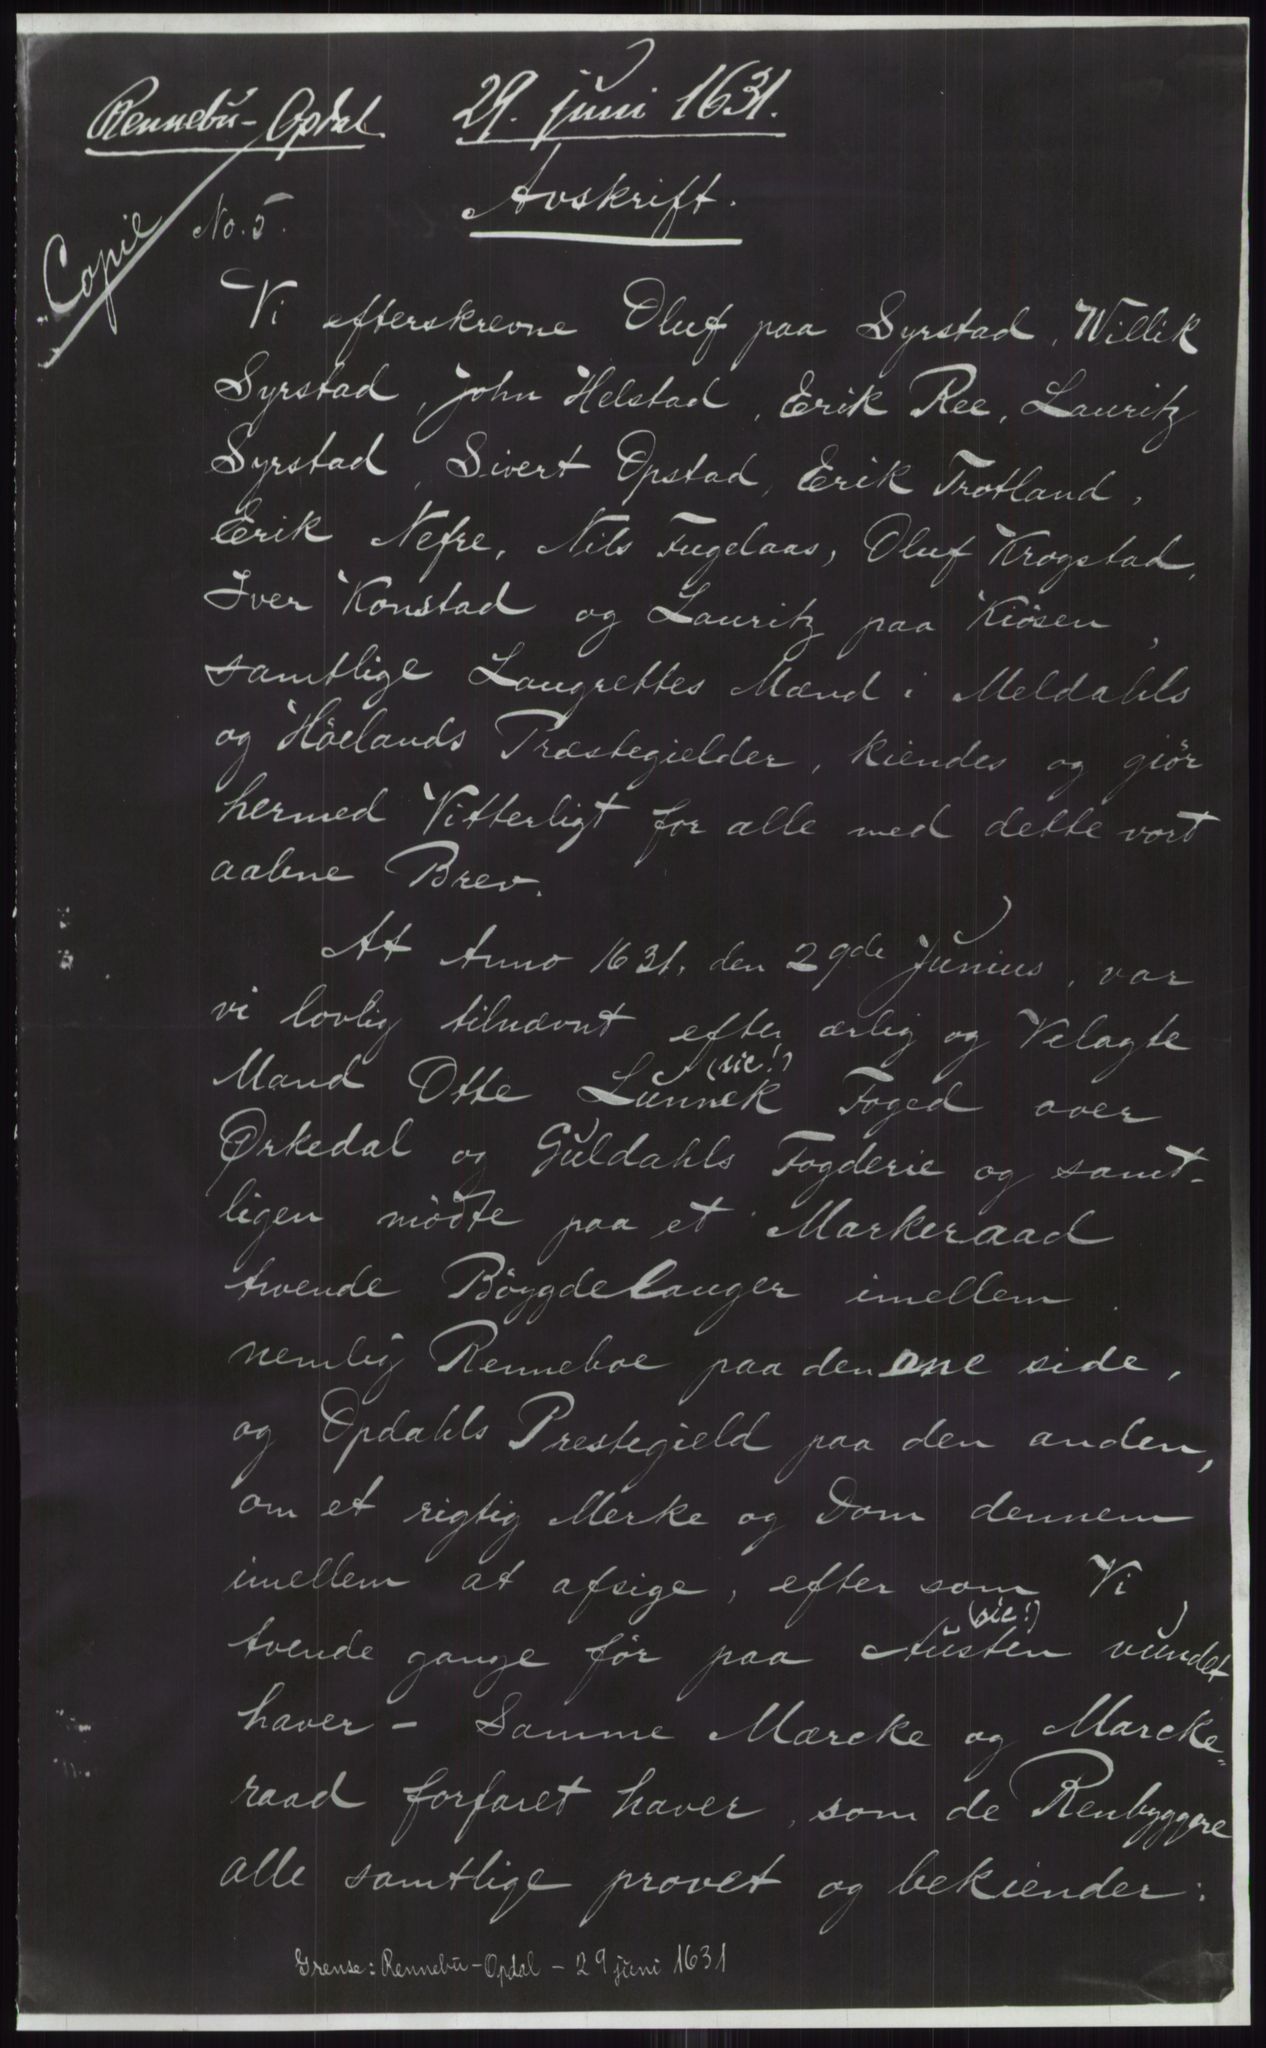 Rennebu - Opdal 29. juni 1631.
Avskrift.
"Copie No. 5.
Vi efterskrevne Oluf paa Syrstad, Willik
Syrstad, John Helstad, Erik Ree, Lauritz
Syrstad, Sivert Opstad, Erik Trotland,
Erik Nefre, Nils Fugelaas, Oluf Krogstad,
Iver Konstad og Lauritz paa Kiösen,
samtlige Laugrettes Mænd i Meldahls
og Höelands Præstegielder, kiendes og giör
hermed Vitterligt for alle med dette vort
aabne Brev.
At Anno 1631. den 29de Junius, var
vi lovlig tilnævnt efter ærlig og Velagte
(sic!)
Mand Otte Lunnek Foged over
Ørkedal og Guldahls Fogderie og samt-
ligen mödte paa et Markeraad
tvende Böygdelauger imellem
nemlig Renneboe paa den ene side,
og Opdahls Prestegield paa den anden,
om et rigtig Merke og Dom dennem
imellem at afsige, efter som Vi
(sic!)
tvende gange för paa Austen vundet
haver - Samme Mærcke og Marcke=
raad forfaret haver, som de Renbyggere
alle samtlige provet og bekiender:
Grense: Rennebu - Opdal - 29 juni 1631